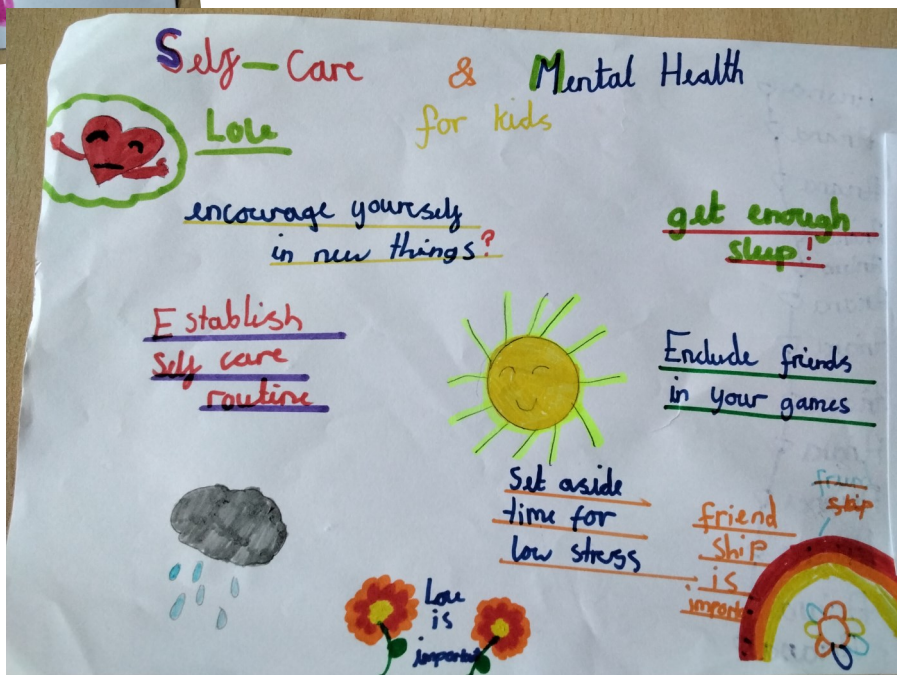 Self-Care & Mental Health
for kids
Love
encourage yourself
in new things?
get enough
sleep!
Establish
Self care
routine
Enclude friends
in your games
Set aside
time for
low stress
friend
ship
is
Love
is
important
ship